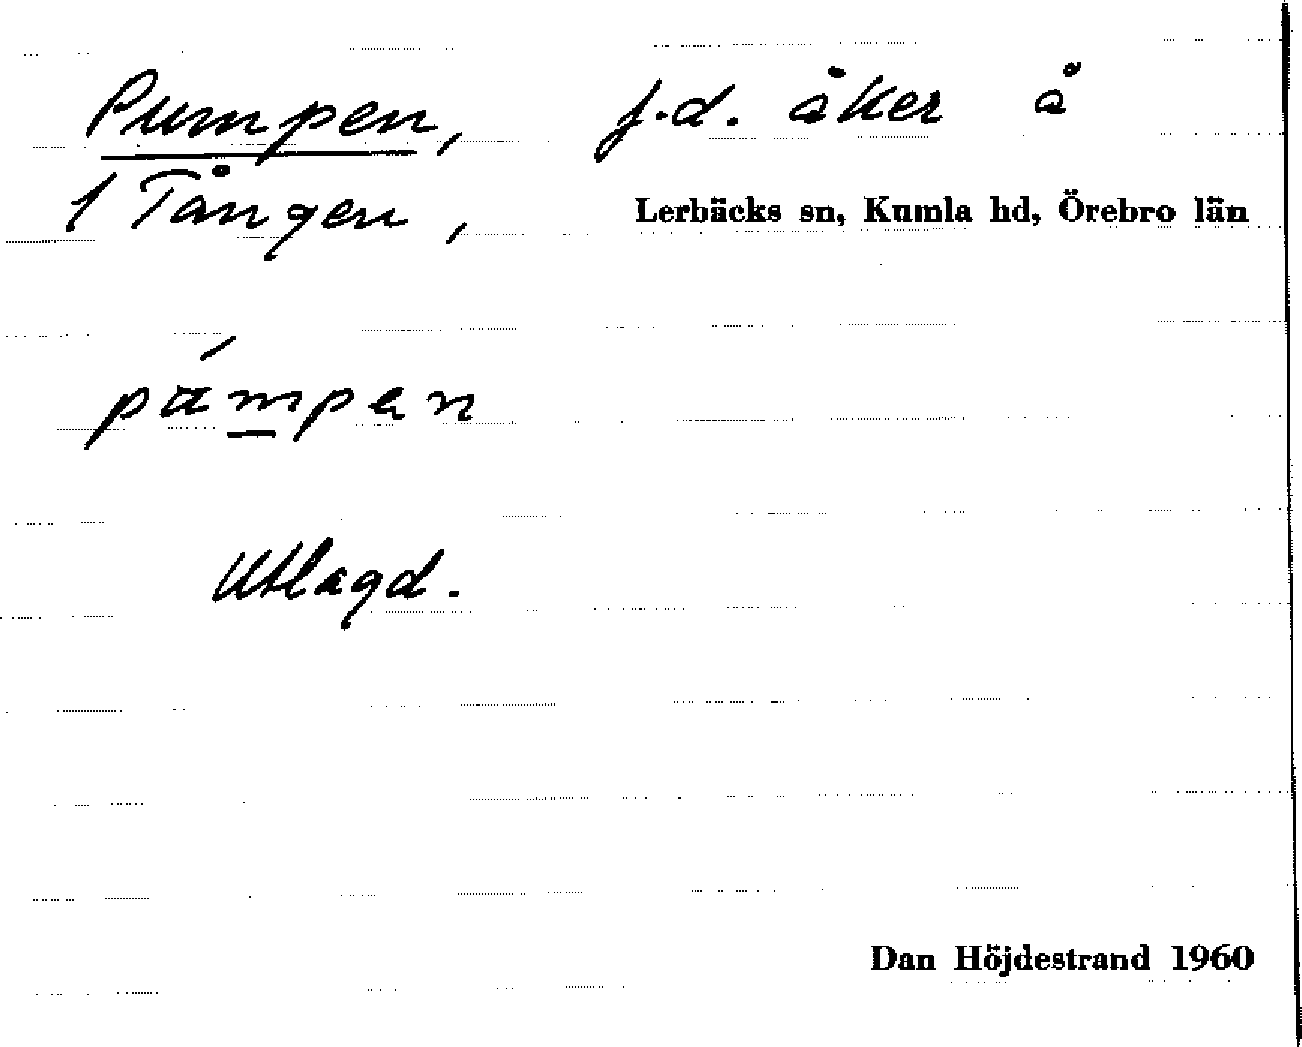 Pumpen, f.d. åker å
1 Tången, Lerbäcks sn, Kumla hd, Örebro län
pu̇́mpen
Utlagd.
Dan Höjdestrand 1960